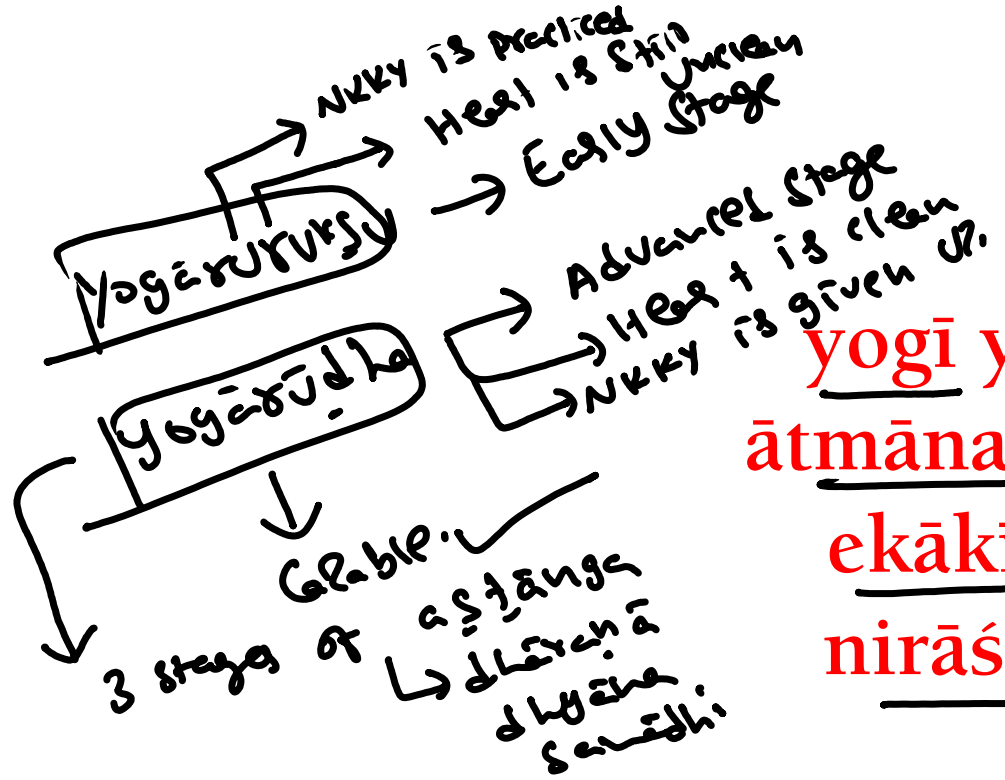 NKKY is practiced
Heart is still unclean
Early Stage
yogārurukṣu
Advanced Stage
Heart is clean
NKKY is given up.
yogārūḍha
Capable.
3 stages of aṣṭāṅga
dhāraṇā
dhyāna
samādhi
yogī y
ātmāna
ekākī
nirāś